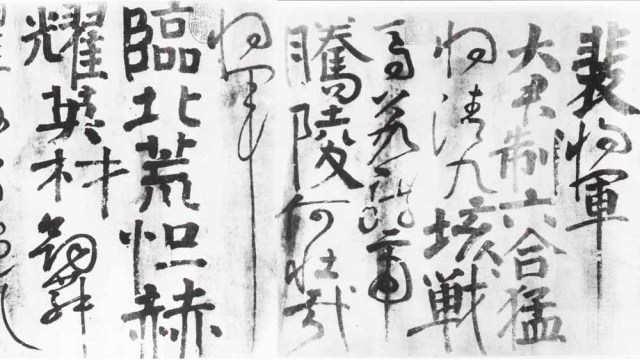 裴将軍
大君制六合猛
将清九垓戰
馬若龍虎
騰陵何壯哉
将軍
臨北荒恒赫
耀英材劍舞